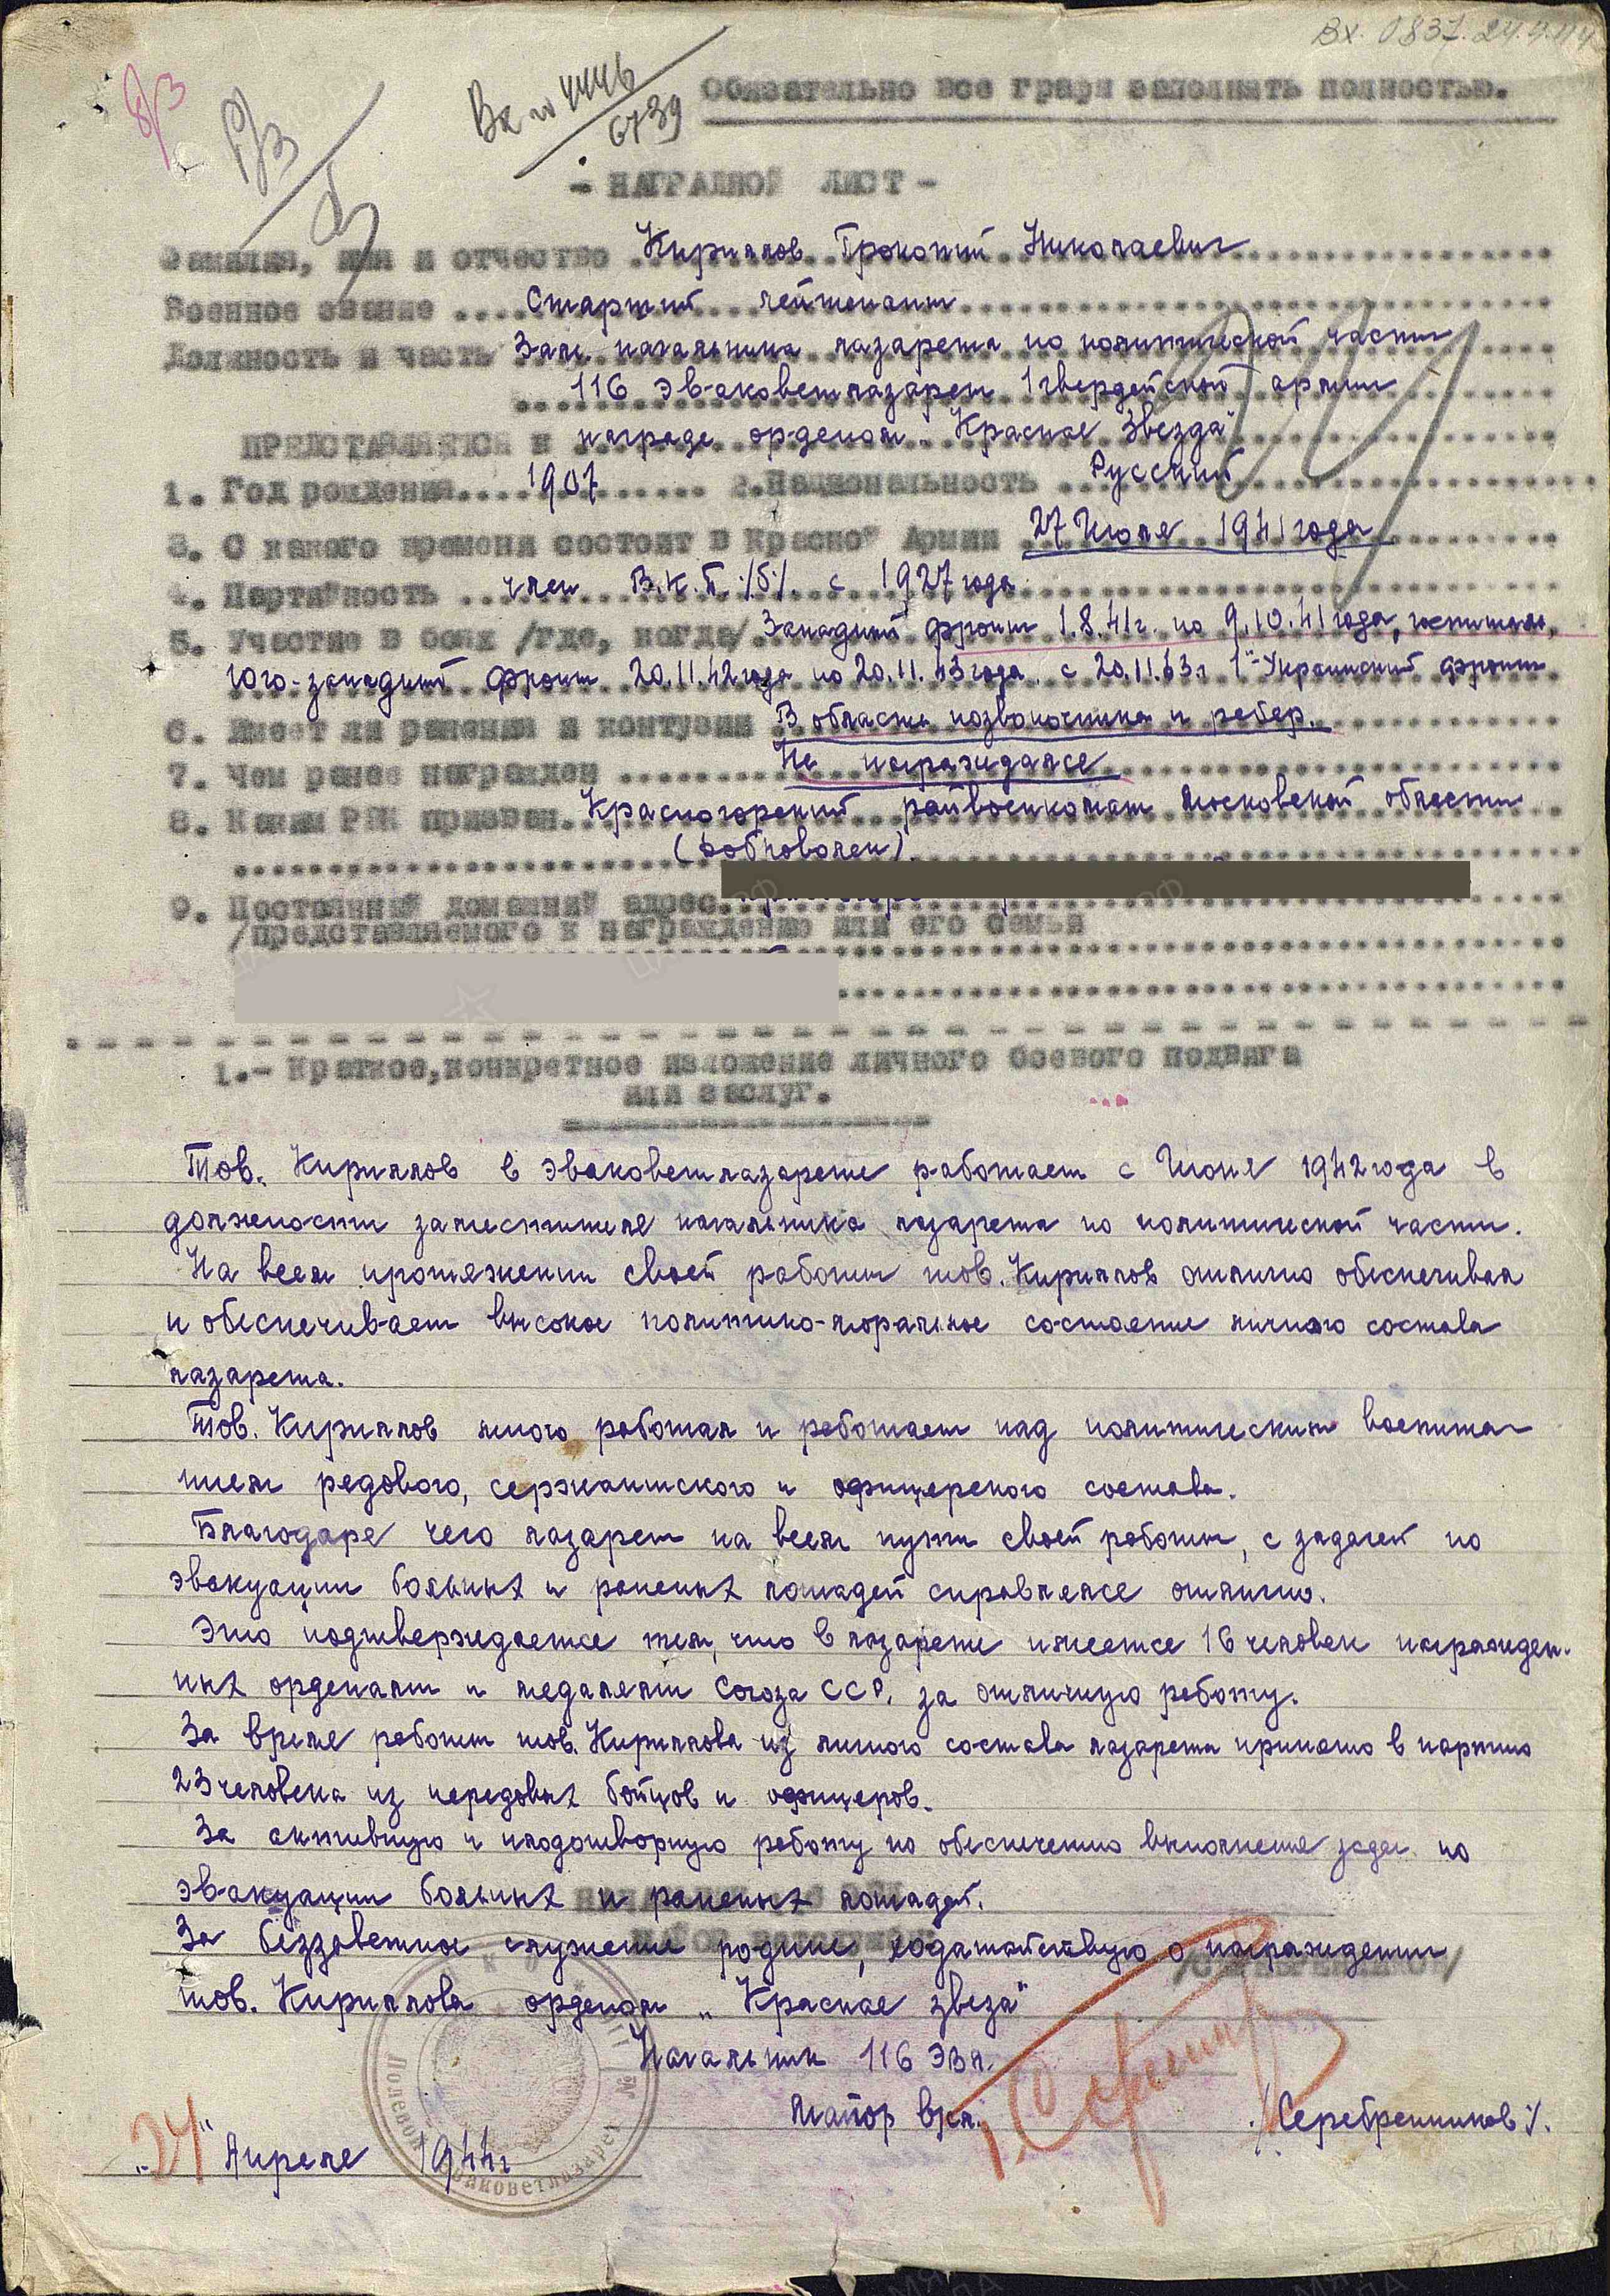 Вх. 0837. 24.4.44
Вх № 4446
6739
Обязательно все графы заполнять полностью.
- НАГРАДНОЙ ЛИСТ -
Фамилия, имя и отчество Кириллов Прокопий Николаевич
Военное звание Старший лейтенант
Должность и часть Зам. начальника лазарета по политической части
116 эваковетлазарет 1 гвардейской армии
ПРЕДСТАВЛЯЕТСЯ к награде орденом „Красная Звезда"
1. Год рождения 1907 2. Национальность Русский
3. С какого времени состоит в Красной Армии 27 Июля 1941 года
4. Партийность член В.К.П./б/. с 1927 года
5. Участие в боях /где, когда/ Западный фронт 1.8.41г. по 9.10.41 года,
Юго-западный фронт 20.11.42 года по 20.11.43 года. с 20.11.43г 1й-Украинский фронт
6. Имеет ли ранения и контузии В области позвоночника и ребер.
7. Чем ранее награжден Не награждался
8. Каким РВК призван. Красногорский райвоенкомат Московской области
(доброволец)
9. Постоянный домашний адрес.
/представляемого к награждению или его семьи
1.- Краткое, конкретное изложение личного боевого подвига
или заслуг.
Тов. Кириллов в эваковетлазарете работает с Июня 1942 года в
должности заместителя начальника лазарета по политической части.
На всем протяжении своей работы тов. Кириллов отлично обеспечивал
и обеспечивает высокое политико-моральное состояние личного состава
лазарета.
Тов. Кириллов много работал и работает над политическим воспита-
нием рядового, сержантского и офицерского состава.
Благодаря чего лазарет на всем пути своей работы, с задачей по
эвакуации больных и раненых лошадей справлялся отлично.
Это подтверждается тем, что в лазарете имеется 16 человек награжден-
ных орденами и медалями Союза ССР. за отличную работу.
За время работы тов. Кириллова из личного состава лазарета принято в партию
23 человека из передовых бойцов и офицеров.
За активную и плодотворную работу по обеспечению выполнения задач по
эвакуации больных и раненых лошадей.
За беззаветное служение родине, ходатайствую о награждении
тов. Кириллова орденом „Красная звеза"
Начальник 116 ЭВЛ.
Майор в/сл. /Серебренников/.
„24" Апреля 1944г
Полевой эваковетлазарет №